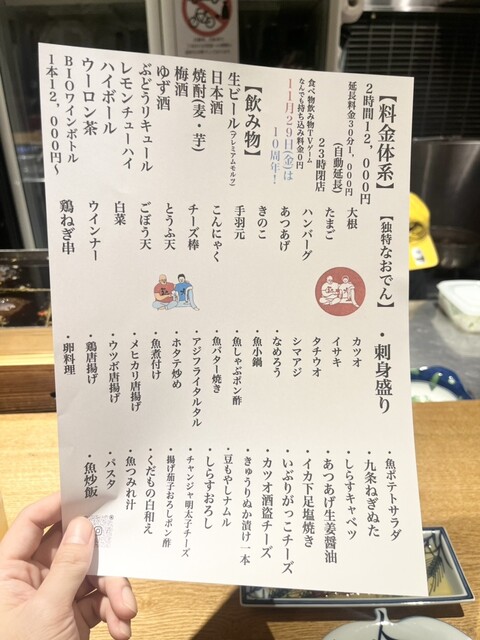 【料金体系】
2時間12,000円
延長料金30分1,000円
(自動延長)
23時閉店
食べ物飲み物TVゲーム
なんでも持ち込み料金0円
11月29日(金)は
10周年!
【飲み物】
生ビール(プレミアムモルツ)
日本酒
焼酎(麦・芋)
梅酒
ゆず酒
ぶどうリキュール
レモンチューハイ
ハイボール
ウーロン茶
BIOワインボトル
1本12,000円〜
【独特なおでん】
大根
たまご
ハンバーグ
あつあげ
きのこ
手羽元
こんにゃく
チーズ棒
とうふ天
ごぼう天
白菜
ウインナー
鶏ねぎ串
・刺身盛り
カツオ
イサキ
タチウオ
シマアジ
・なめろう
・魚小鍋
・魚しゃぶポン酢
・魚バター焼き
・アジフライタルタル
・ホタテ炒め
・魚煮付け
・メヒカリ唐揚げ
・ウツボ唐揚げ
・鶏唐揚げ
・卵料理
・魚ポテトサラダ
・九条ねぎぬた
・しらすキャベツ
・あつあげ生姜醤油
・イカ下足塩焼き
・いぶりがっこチーズ
・カツオ酒盗チーズ
・きゅうりぬか漬け一本
・豆もやしナムル
・しらすおろし
・チャンジャ明太子チーズ
・揚げ茄子おろしポン酢
・くだもの白和え
・魚つみれ汁
・パスタ
・魚炒飯